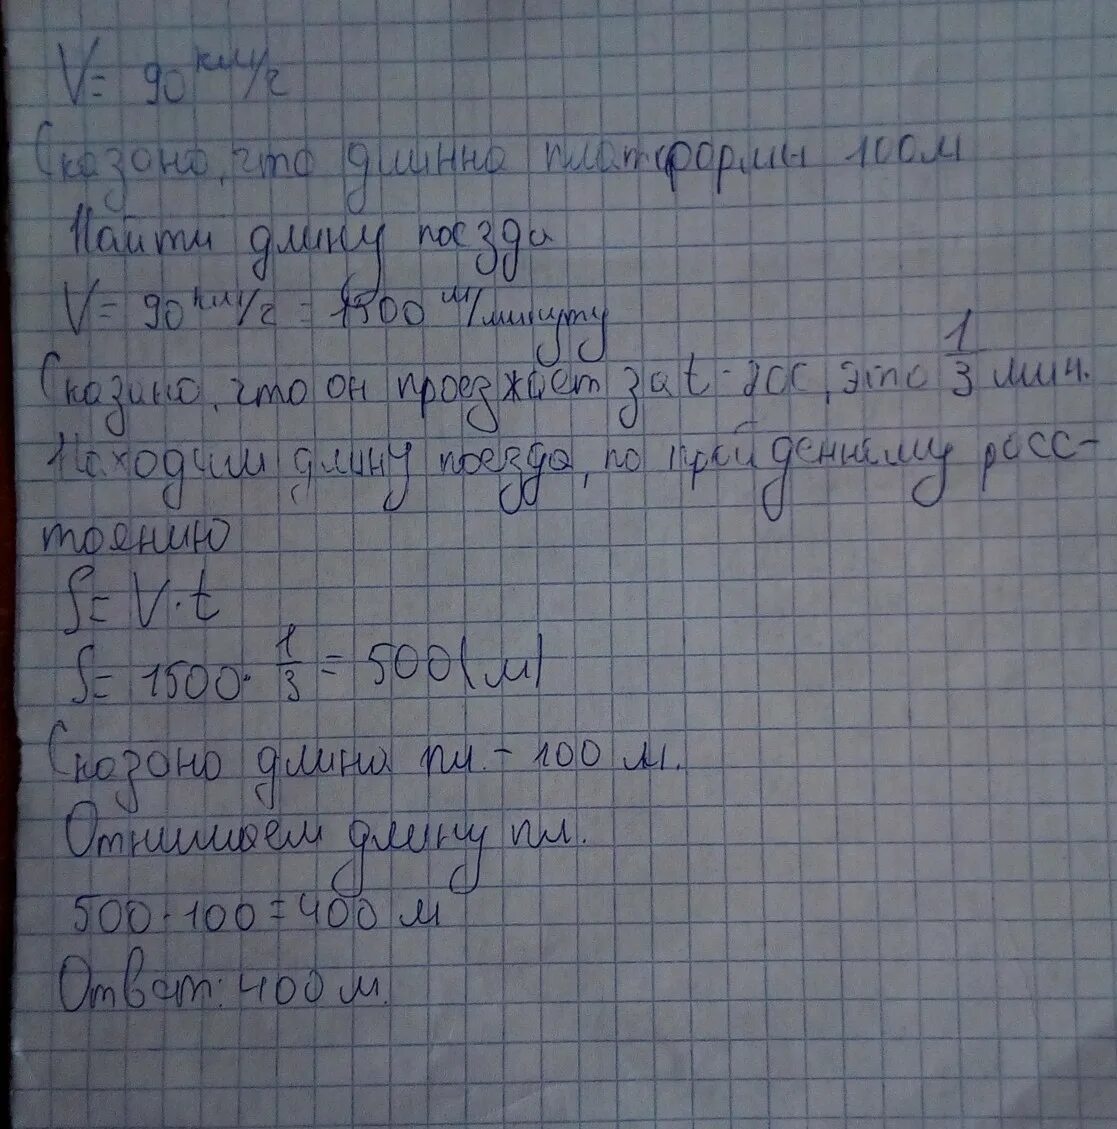 V= 90 км/г
Сказоно, что длинно платформы 100м
Найти длину поезда
V= 90 км/г = 1500 м/минуту
Сказано, что он проезжает за t - 20с, это 1/3 мин.
Находим длину поезда, по пройденному расс-
тоянию
S= V·t
S= 1500· 1/3 = 500(м)
Сказоно длина пл. - 100 м.
Отнимаем длину пл.
500-100=400 м
Ответ: 400 м.